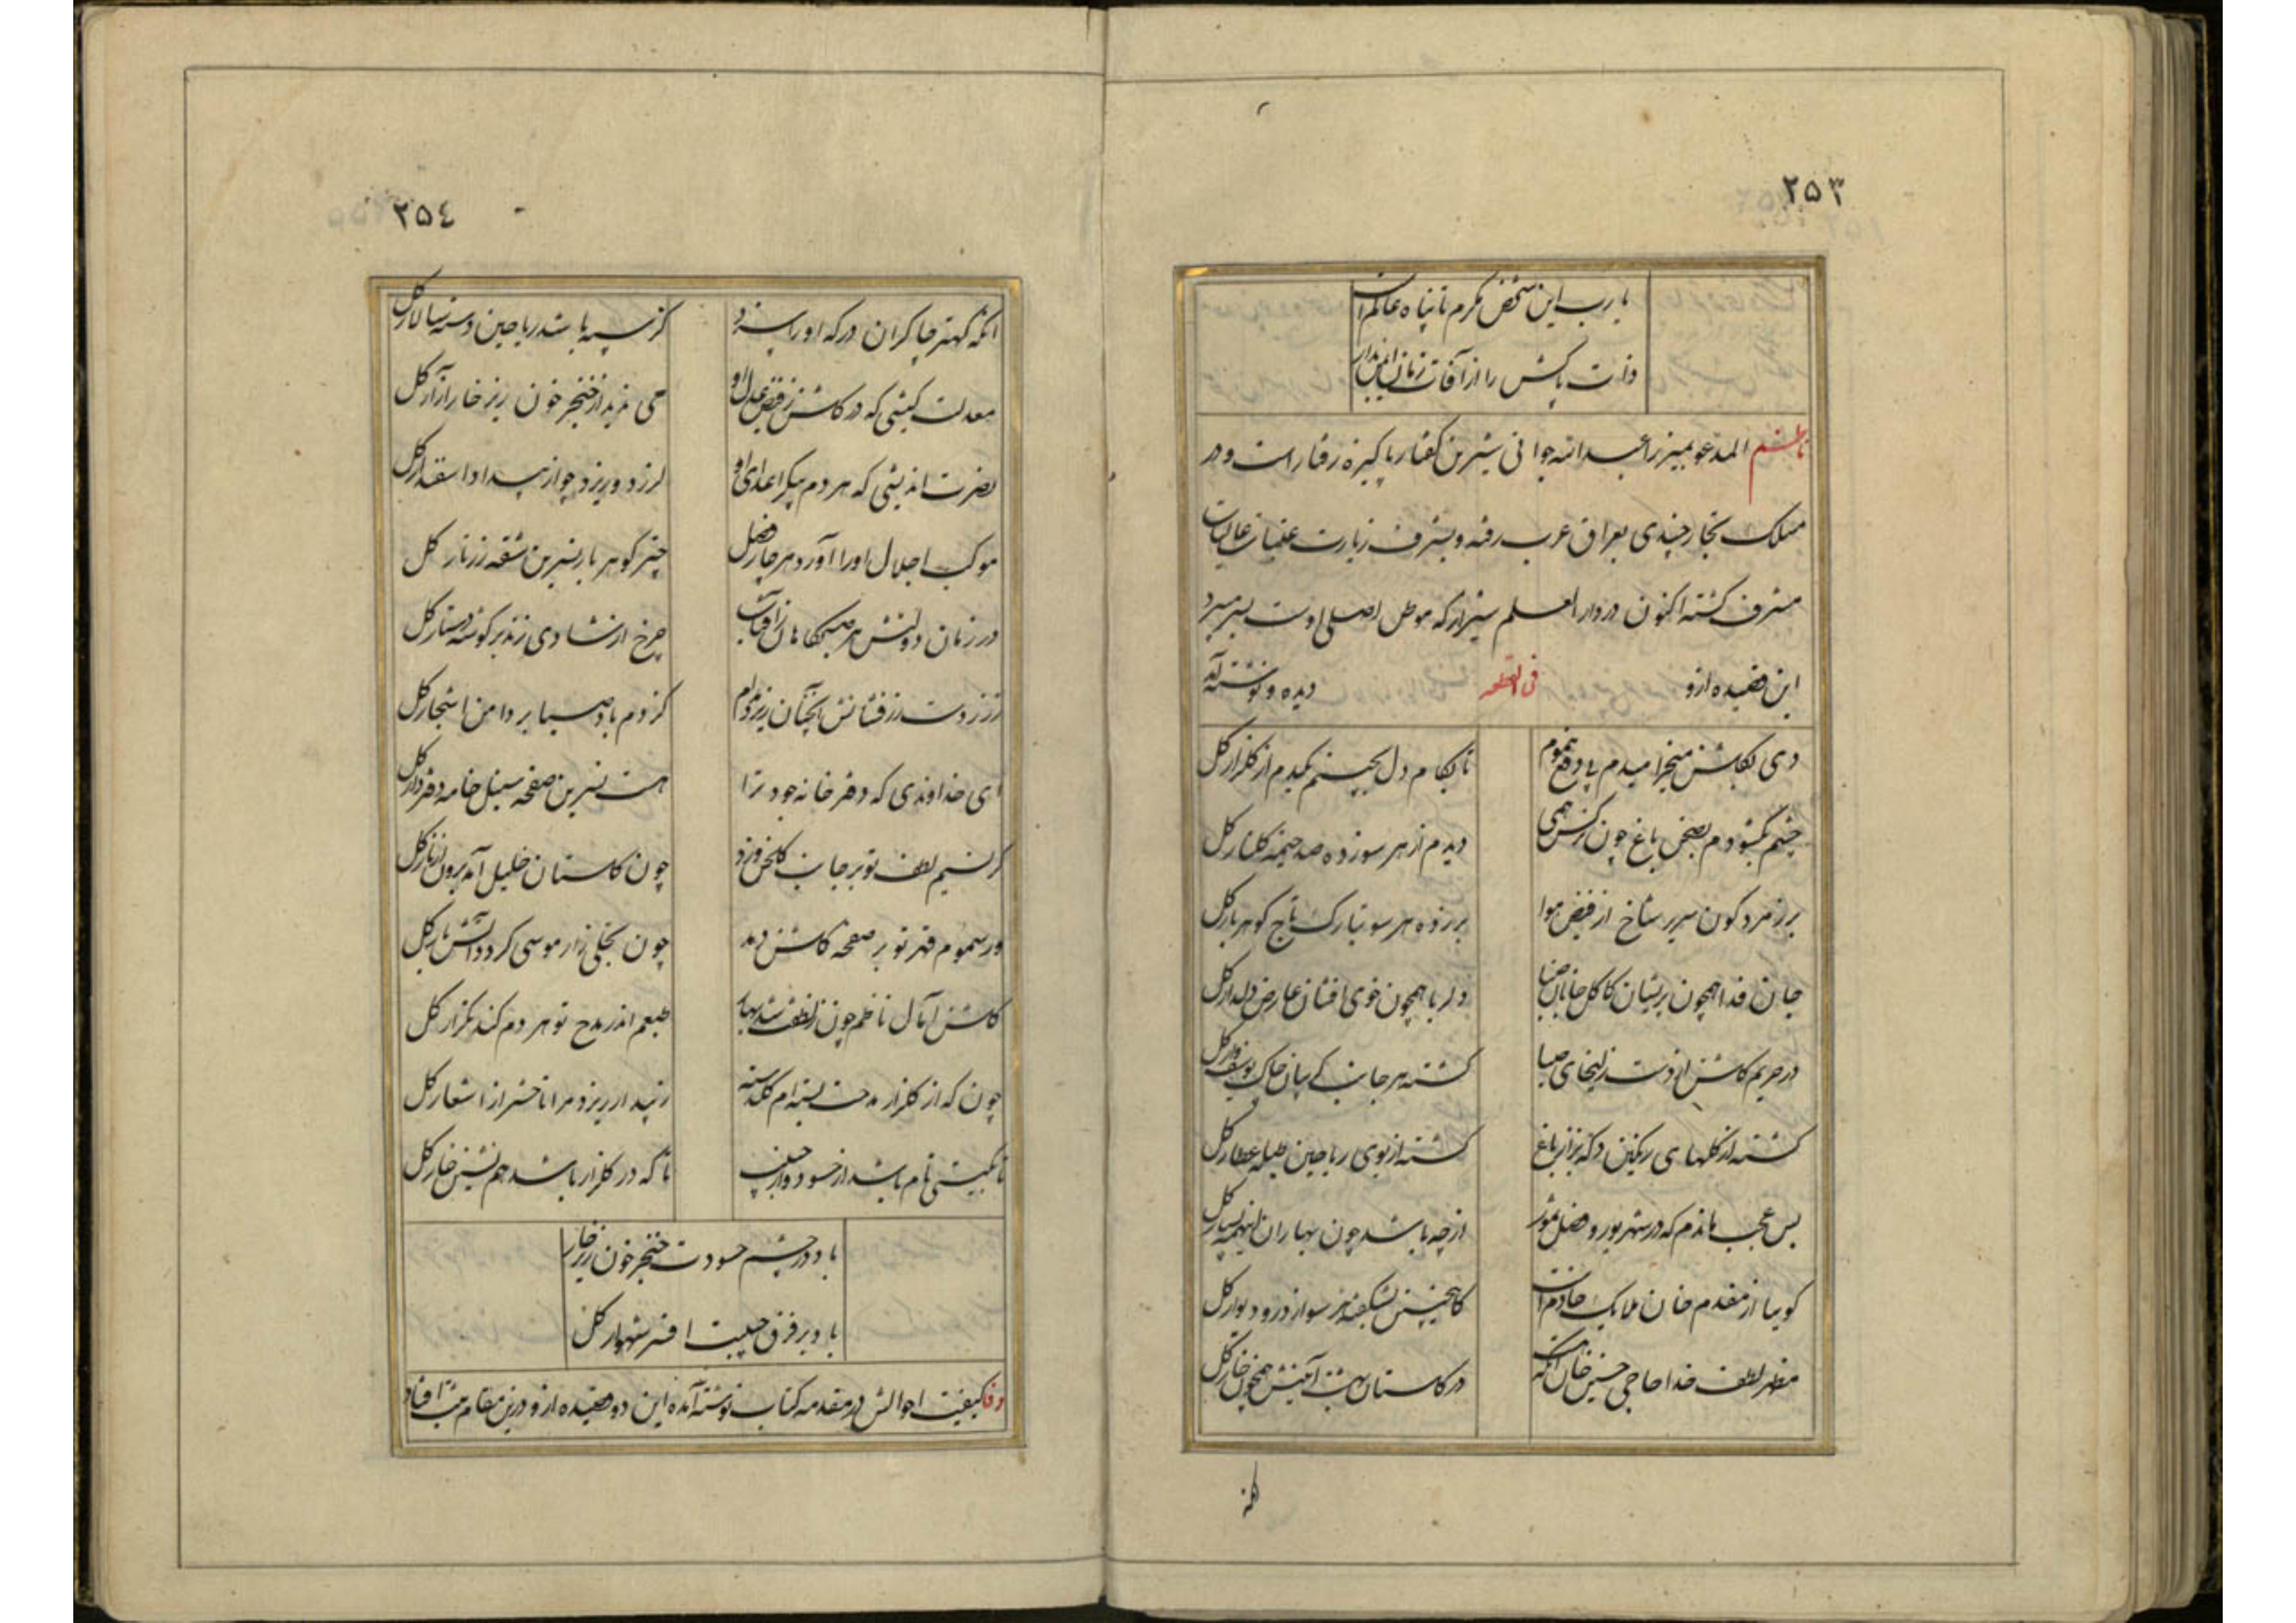 ۲۵۳
یا رب این شخص مکرم تا پناه عالم است
ذات پاکش را از آفات زمان ایمن بدار
ناظم المدعو بمیرزا عبدالله جوانی شیرین کفتار پاکیزه رفتار است و در
مسلک تجار چندی بعراق عرب رفته و بشرف زیارت عتبات عالیات
مشرف کشته اکنون در دار العلم شیراز که موطن اصلی اوست بسر میبرد
این قصیده ازو دیده و نوشته آمد
دی بکلشن میخرامیدم پی دفع هموم تا بکام دل بچینم یکدم از کلزار کل
چشم بکشودم بصحن باغ چون نرکس همی دیدم از هر سو زده صد خیمه کلنار کل
بر زمرد کون سریر شاخ از فیض هوا بر زده هر سو بتارک تاج کوهر بار کل
جان فدا همچون پریشان کاکل جانان صبا دلربا همچون خوی افشان عارض دلدار کل
در حریم کلشن از دست زلیخای صبا کشته هر جانب کریبان چاک یوسف وار کل
کشته از کلهای رنکین دکه بزاز باغ کشته از بوی ریاحین طبله عطار کل
بس عجب ماندم که در شهریور و فصل تموز از چه باشد چون بهاران اینهمه بسیار کل
کوییا از مقدم خان ملایک خادم است کاینچنین بشکفته هر سو از در و دیوار کل
مظهر لطف خدا حاجی حسین خان آنکه هست در کلستان بهشت آیینش همچون خار کل
۲۵٤
آنکه کهتر چاکران درکه او را سزد کز سپه باشد ریاحین و سپه سالار کل
معدلت کیشی که در کلشن ز فیض عدل او می نبیند از خنجر خون ریز خار آزار کل
نصرت اندیشی که هر دم پیکر اعدای او لرزد و ریزد چو از بیداد اسفندار کل
موکب اجلال او را آورد هر چار فصل چتر کوهر بار نسرین شقه زرتار کل
در زمان دولتش هر صبحکاهان ز آفتاب چرخ از شادی زند بر کوشه دستار کل
زر ز دست زرفشانش آنچنان ریزد مدام کز دم باد صبا بر دامن اشجار کل
ای خداوندی که دفتر خانه جود ترا هست نسرین صفحه سنبل خامه دفتردار کل
کر نسیم لطف تو بر جانب کلخن وزد چون کلستان خلیل آید برون از نار کل
ور سموم قهر تو بر صفحه کلشن دمد چون تجلی زار موسی کردد آتش بار کل
کلشن آمال ناظم چون ز لطفت شد بهار طبعم اندر مدح تو هر دم کند تکرار کل
چون که از کلزار مدحت بسته ام کلدسته زیبد ار ریزد مرا تا حشر از اشعار کل
تا بکیتی نام باشد از حسود و از حبیب تا که در کلزار باشد هم نشین خار کل
باد در چشم حسودت خنجر خون ریز خار
باد بر فرق حبیبت افسر شهوار کل
وفا کیفیت احوالش در مقدمه کتاب نوشته آمده این دو قصیده ازو درین مقام ثبت افتاد